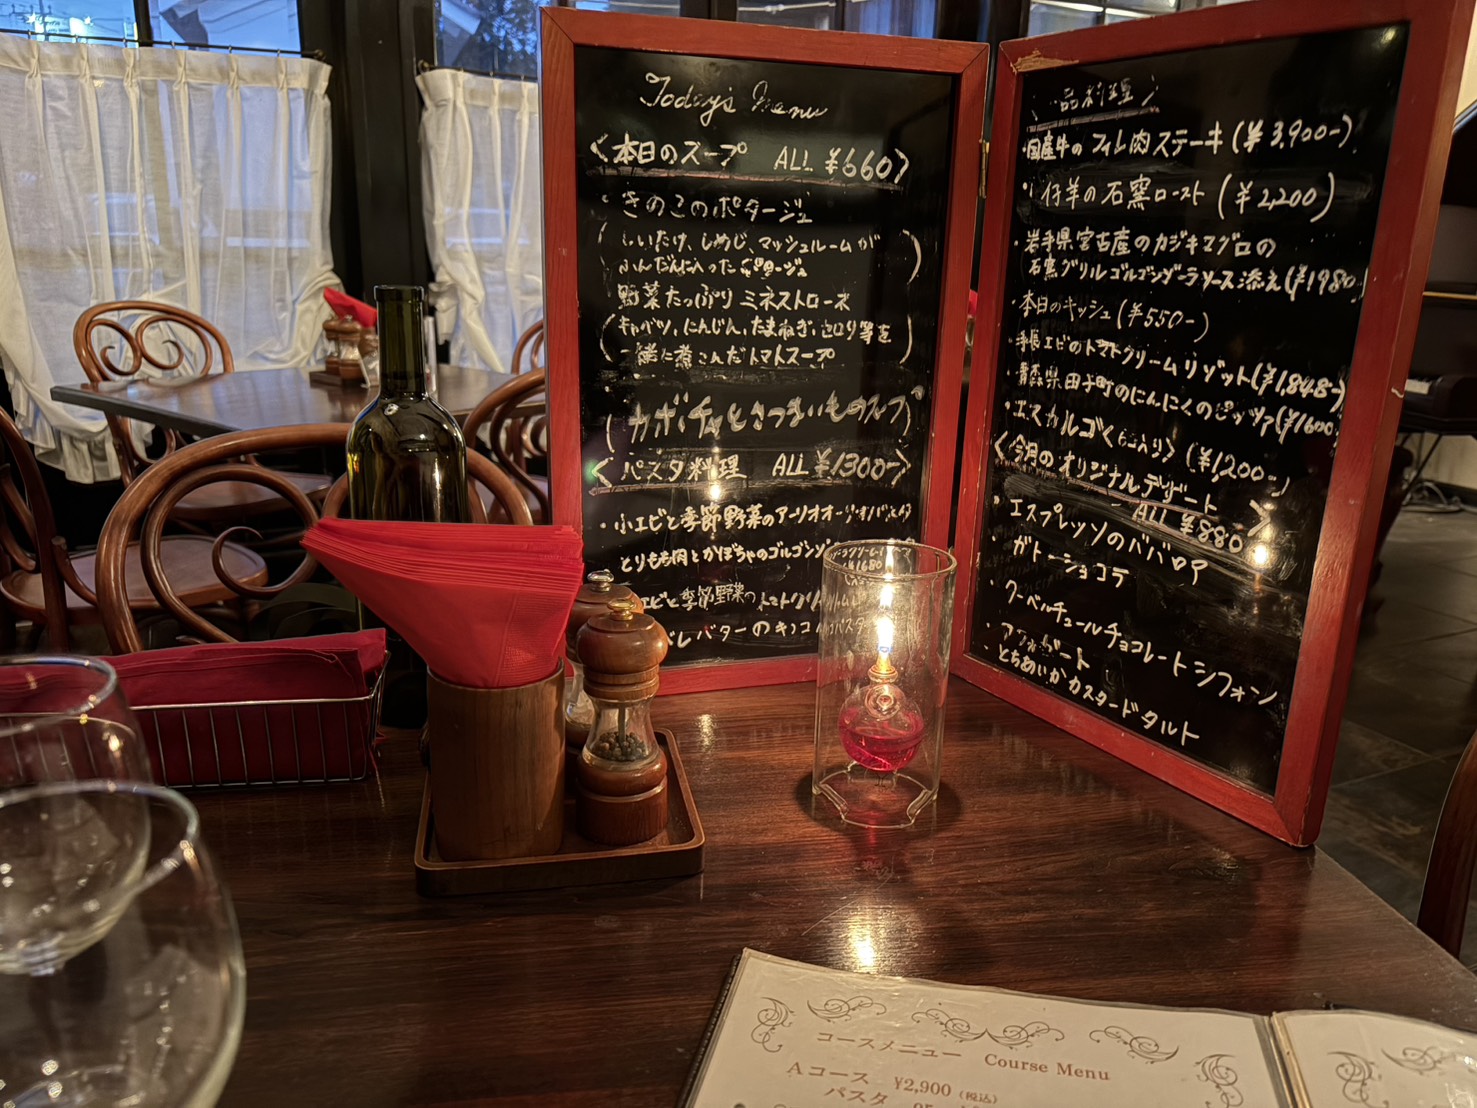 Today's Menu
〈本日のスープ ALL ¥660〉
・きのこのポタージュ
(しいたけ、しめじ、マッシュルームが
ふんだんに入ったポタージュ)
野菜たっぷりミネストローネ
(キャベツ、にんじん、たまねぎ、セロリ等を
一緒に煮こんだトマトスープ)
(カボチャとさつまいものスープ
〈パスタ料理 ALL ¥1300-〉
・小エビと季節野菜のアーリオオーリオ
とりもも肉とかぼちゃのゴルゴンゾーラクリーム
¥1680
エビと季節野菜のトマトクリーム
バターのキノコ パスタ
一品料理
・国産牛のフィレ肉ステーキ(¥3,900-)
・仔羊の石窯ロースト(¥2,200)
・岩手県宮古産のカジキマグロの
石窯グリルゴルゴンゾーラソース添え(¥1980)
・本日のキッシュ(¥550-)
・手長エビのトマトクリームリゾット(¥1,848-)
・青森県田子町のにんにくのピッツァ(¥1600)
・エスカルゴ〈6コ入り〉(¥1,200-)
〈今月のオリジナルデザート
ALL ¥880〉
・エスプレッソのババロア
・ガトーショコラ
・クーベルチュールチョコレートシフォン
・アフォガート
・とちあいかカスタードタルト
コースメニュー Course Menu
Aコース ¥2,900(税込)
パスタ